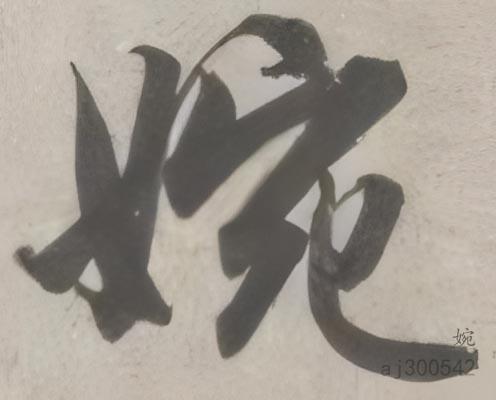 婉
婉
aj300542